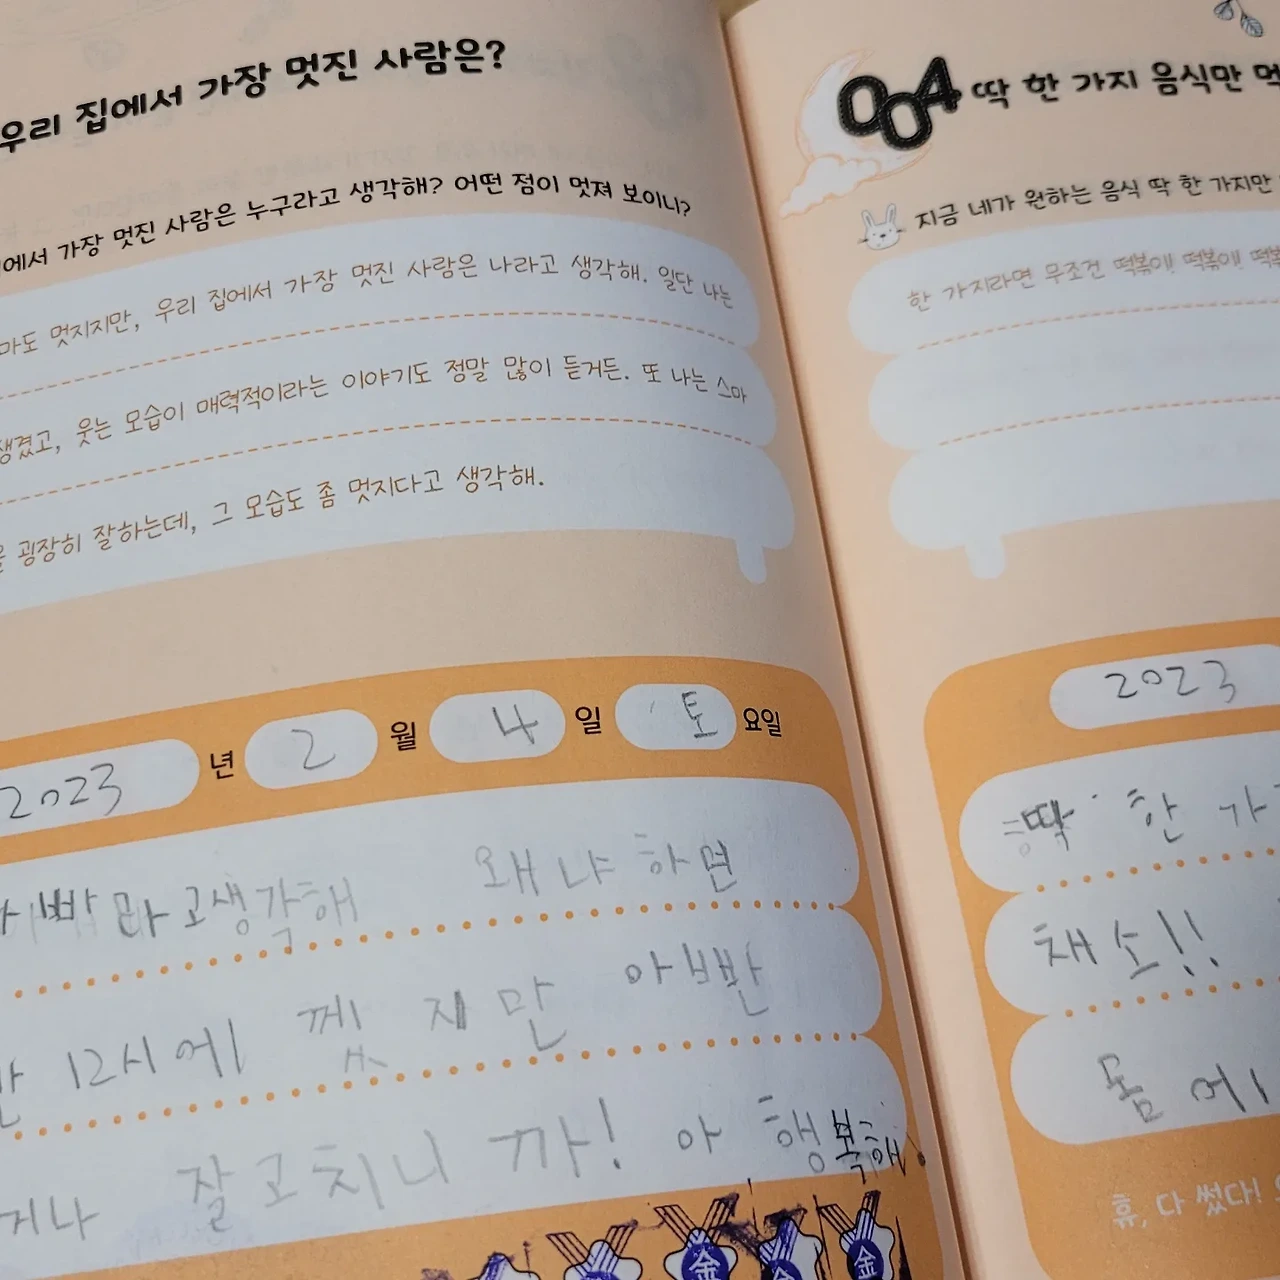 우리 집에서 가장 멋진 사람은?
에서 가장 멋진 사람은 누구라고 생각해? 어떤 점이 멋져 보이니?
마도 멋지지만, 우리 집에서 가장 멋진 사람은 나라고 생각해. 일단 나는
생겼고, 웃는 모습이 매력적이라는 이야기도 정말 많이 듣거든. 또 나는 스마
을 굉장히 잘하는데, 그 모습도 좀 멋지다고 생각해.
2023 년 2 월 4 일 토 요일
빠 라고생각해 왜냐하면
12시에 깼지만 아빤
거나 잘고치니까! 아 행복해!
金 金 金
004 딱 한 가지 음식만 먹
지금 네가 원하는 음식 딱 한 가지만
한 가지라면 무조건 떡볶이! 떡볶이! 떡볶
2023
딱 한 가
채소!!
몸에
휴, 다 썼다!